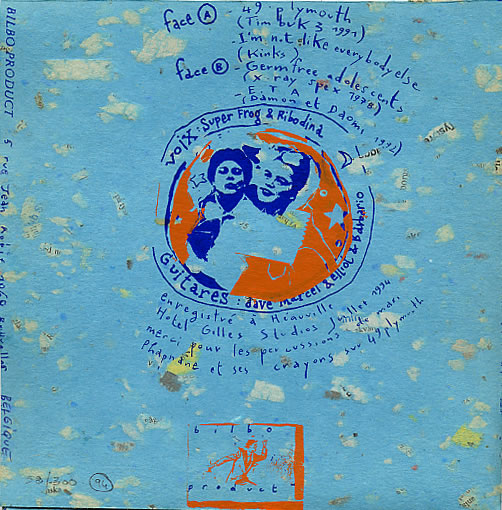 face A - 49. plymouth
(Tim buk 3 1991)
. I'm not like everybody else
(Kinks)
face B - Germ free adolescents
(X. ray Spex 1978)
- E. T. A
(Damon et Naomi 1992)
voix : Super Frog & Ribodina
Guitares : dave Marcel & elliot & Barbario
enregistré à Héauville
Hotel Gilles Studios juillet 1994
merci pour les percussions
et ses crayons sur 49 plymouth
BILBO PRODUCT 5 rue Jean BELGIQUE
bilbo
product
58/300
94